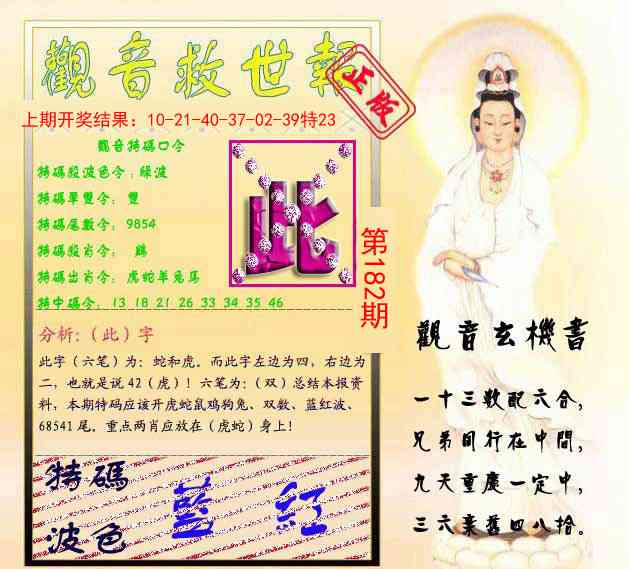 觀音救世報
正版
上期开奖结果：10-21-40-37-02-39特23
觀音特碼口令
特碼殺波色令：綠波
特碼單雙令： 雙
特碼尾數令：9854
特碼殺肖令： 鷄
特碼出肖令：虎蛇羊兔马
特中碼令： 13 18 21 26 33 34 35 46
此
第182期
分析：（此）字
此字（六笔）为：蛇和虎。而此字左边为四，右边为
二，也就是说 42（虎）！六笔为：（双）总结本报资
料，本期特码应该开虎蛇鼠鸡狗兔、双数、蓝红波、
68541 尾。重点两肖应放在（虎蛇）身上！
特碼
波色
藍 紅
觀音玄機書
一十三数配六合，
兄弟同行在中間，
九天重慶一定中，
三六棄舊四八拾。